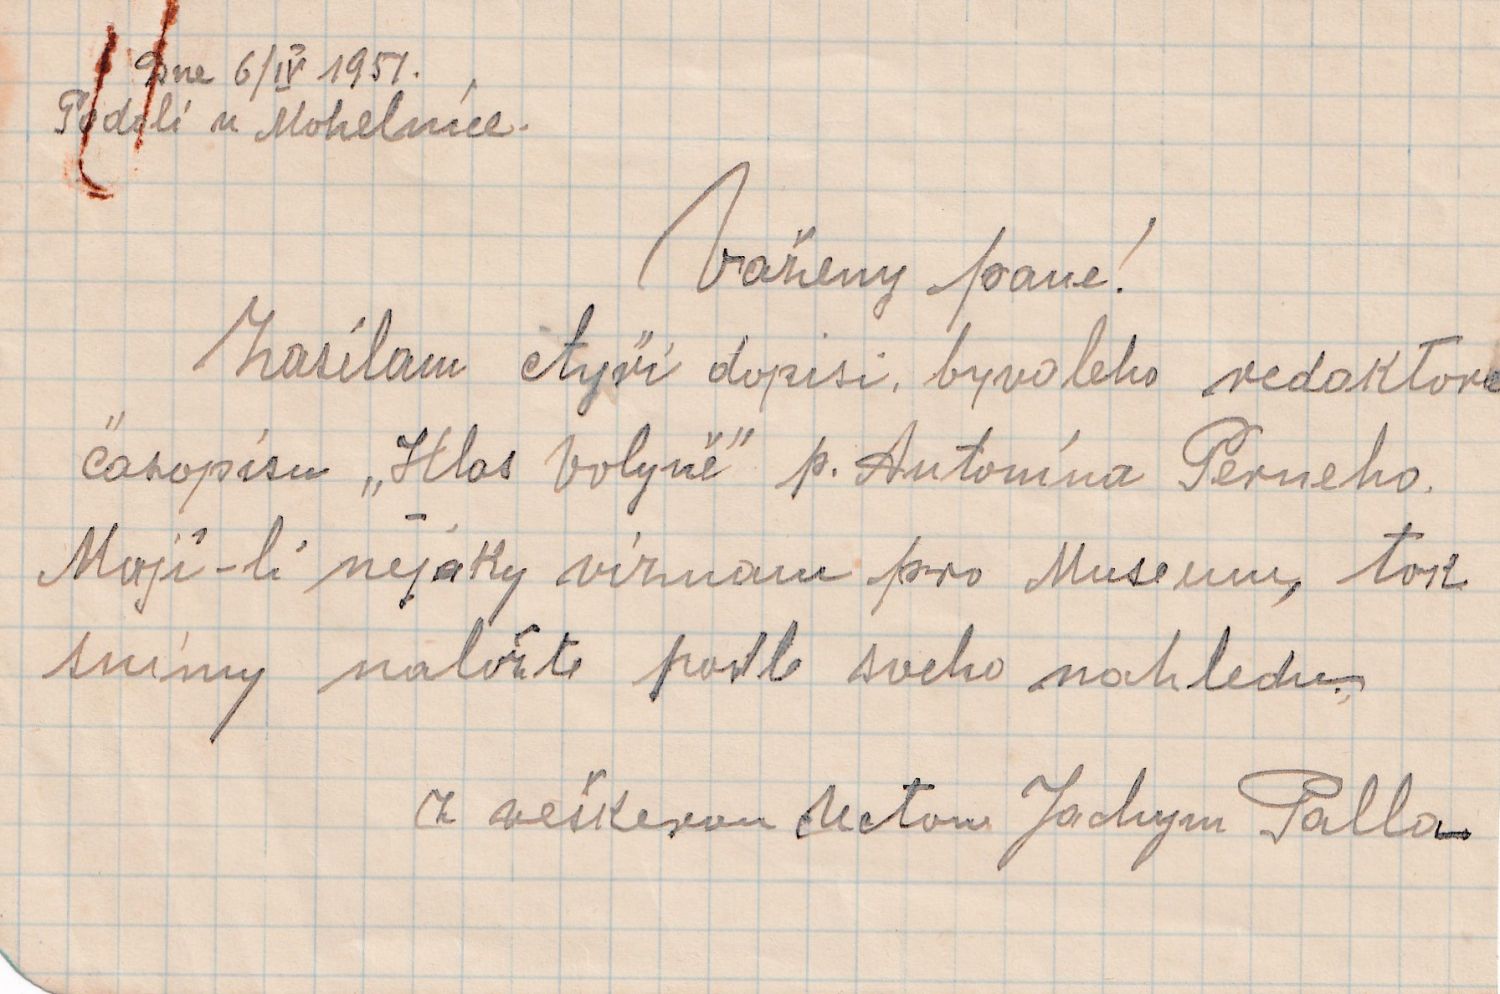 Dne 6/IV 1951.
Podolí u Mohelnice.
Važeny pane!
Zasílam čtyři dopisi, byvaleho redaktora
časopisu „Hlas Volyně" p. Antonína Perneho.
Mají-li nějáky víznam pro Museum, tak
snímy naložte podle sveho nahledu,
z veškerou uctou Jachym Palla